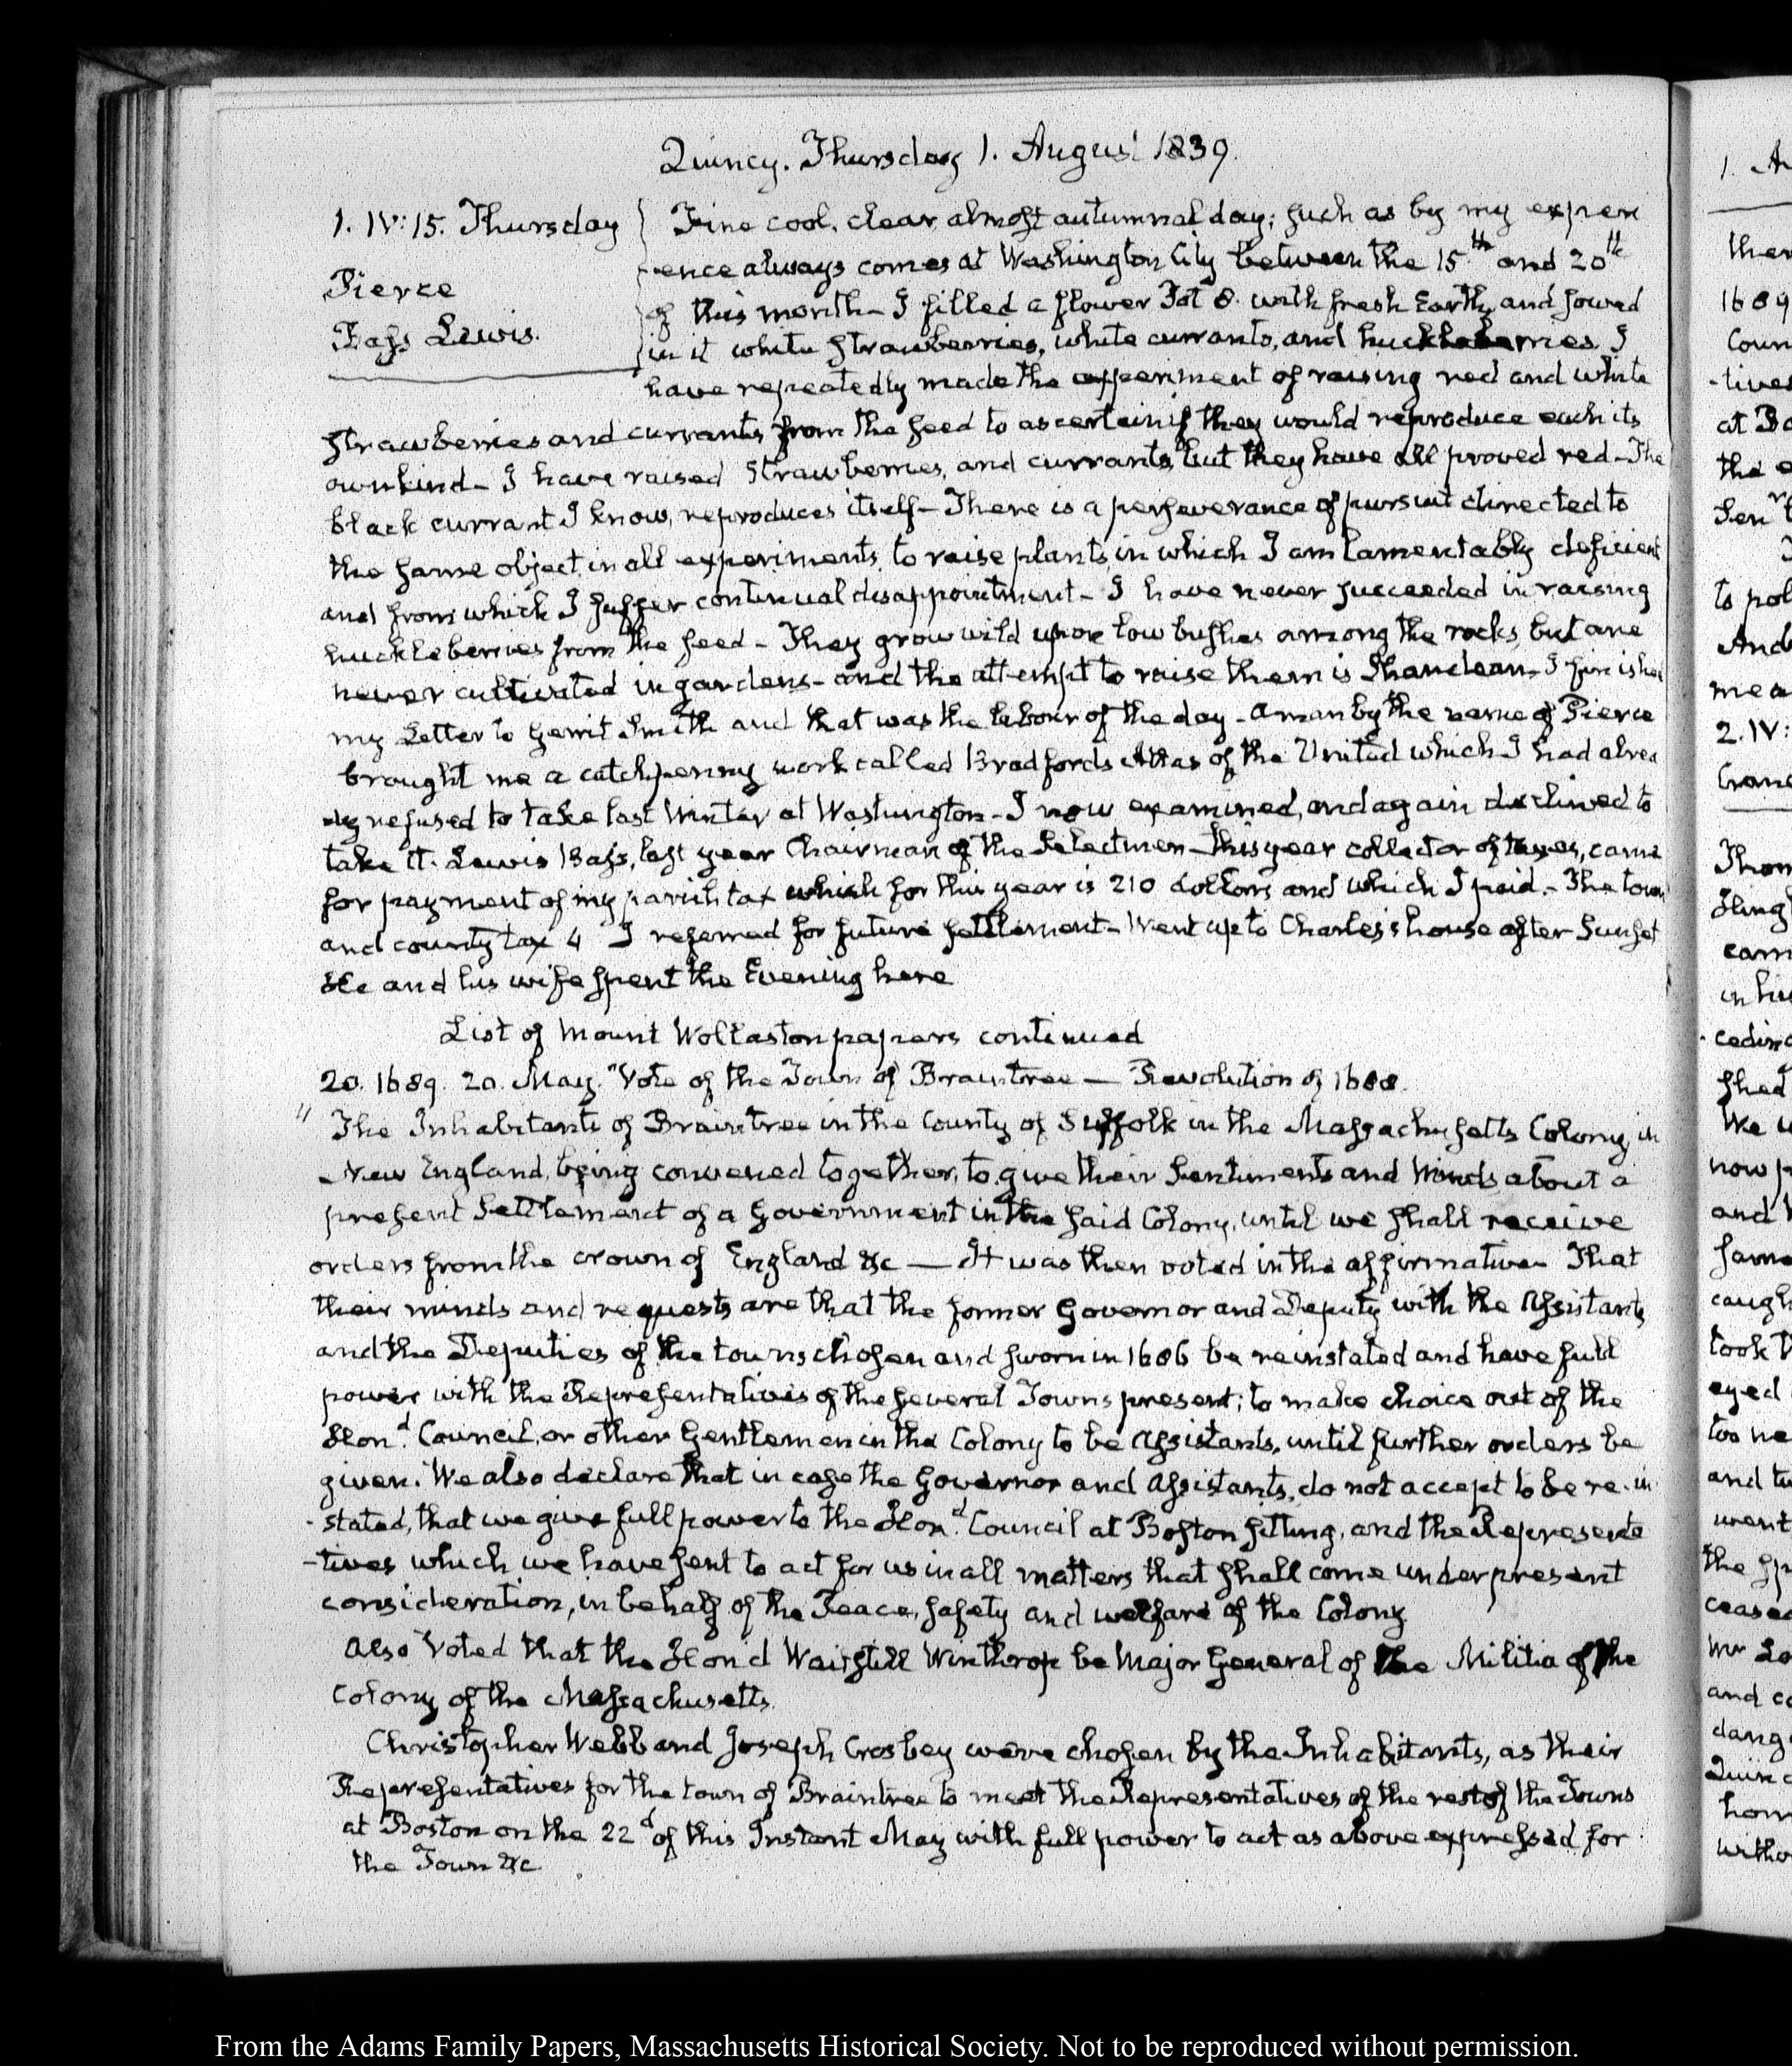 Quincy. Thursday 1. August 1839.
1. IV:15. Thursday
Pierce
Bass Lewis.
Fine cool, clear almost autumnal day; such as by my experi
-ence always comes at Washington City between the 15th and 20th
of this month — I filled a flower Pot 8. with fresh Earth, and sowed
in it white strawberries, white currants, and huckleberries I
have repeatedly made the experiment of raising red and white
strawberries and currants, from the seed to ascertain if they would reproduce each its
own kind — I have raised strawberries, and currants, but they have all proved red — The
black currant I know, reproduces itself — There is a perseverance of pursuit directed to
the same object, in all experiments, to raise plants, in which I am lamentably deficient
and from which I suffer continual disappointment — I have never succeeded in raising
huckleberries from the seed — They grow wild upon low bushes among the rocks, but are
never cultivated in gardens — and the attempt to raise them is Shandean — I finished
my Letter to Gerrit Smith and that was the labour of the day — a man by the name of Pierce
brought me a catchpenny work called Bradfords Atlas of the United which I had alrea
dy refused to take last Winter at Washington — I now examined, and again declined to
take it. Lewis Bass, last year Chairman of the Selectmen — this year collector of taxes, came
for payment of my parish tax which for this year is 210 dollars and which I paid. — The town
and county tax 4 I referred for future settlement — Went up to Charles's house after Sunset
He and his wife spent the Evening here
List of Mount Wollaston papers continued
20. 1689. 20. May. "Vote of the Town of Braintree — Revolution of 1688.
" The Inhabitants of Braintree in the County of Suffolk in the Massachusetts Colony, in
New England, being convened together, to give their Sentiments and Minds about a
present Settlement of a Government in the said Colony, until we shall receive
orders from the crown of England &c — It was then voted in the affirmative — That
their minds and requests are that the former Governor and Deputy with the Assistants
and the Deputies of the towns chosen and sworn in 1686 be reinstated and have full
power with the Representatives of the several Towns present; to make choice out of the
Hond. Council, or other Gentlemen in the Colony to be Assistants, until further orders be
given. We also declare that in case the Governor and Assistants, do not accept to be re-in
-stated, that we give full power to the Hond. Council at Boston sitting, and the Representa
-tives which we have sent to act for us in all matters that shall come under present
consideration, in behalf of the Peace, safety and welfare of the Colony
Also Voted that the Hond Waitstill Winthrop be Major General of the Militia of the
Colony of the Massachusetts.
Christopher Webb and Joseph Crosbey were chosen by the Inhabitants, as their
Representatives for the town of Braintree to meet the Representatives of the rest of the Towns
at Boston on the 22d of this Instant May with full power to act as above expressed for
the Town &c
From the Adams Family Papers, Massachusetts Historical Society. Not to be reproduced without permission.